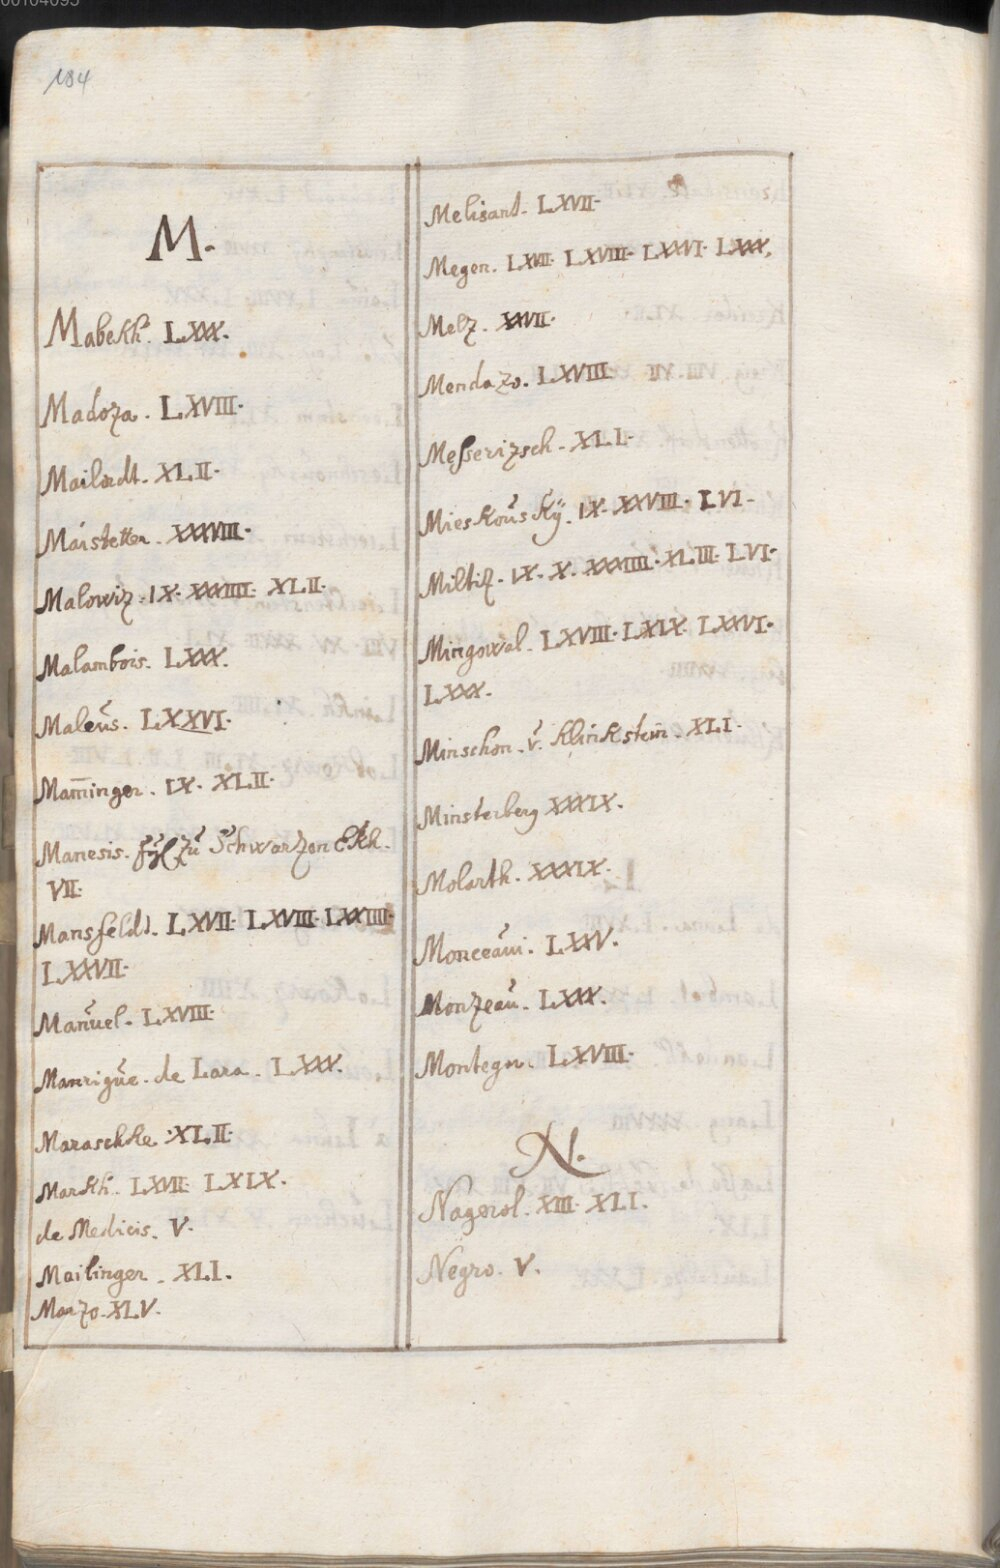 00104095
184
M.
Mabekh. LXXX.
Madoza. LXVIII.
Mailadt. XLII.
Maistetten. XXXVIII.
Malowiz. IX. XXXIIII. XLII.
Malambois. LXXX.
Maleűs. LXXVI.
Mam̄inger. IX. XLII.
Manesis. zű Schwarzen Ekh.
VII.
Mansfeldt. LXVII. LXVIII. LXXIIII.
LXXVII.
Manűel. LXVIII.
Manrigűe. de Lara. LXXX.
Maraschke. XLII.
Markh. LXVII. LXIX.
de Medicis. V.
Mailinger. XLI.
Manzo. XLV.
Melisant. LXVII.
Megen. LXVII. LXVIII. LXXVI. LXXX.
Melz. XXVII.
Mendazo. LXVIII.
Messerizsch. XLI.
Mieskoűskÿ. IX. XXVIII. LVI.
Miltiz. IX. X. XXXIIII. XLIII. LVI.
Mingowal. LXVIII. LXIX. LXXVI.
LXXX.
Minschon. v. Klinkstein. XLI.
Minsterberg XXXIX.
Molarth. XXXIX.
Monceaűi. LXXV.
Monzeaű. LXXX.
Montegn. LXVIII.
N.
Nagerol. XIII. XLI.
Negro. V.